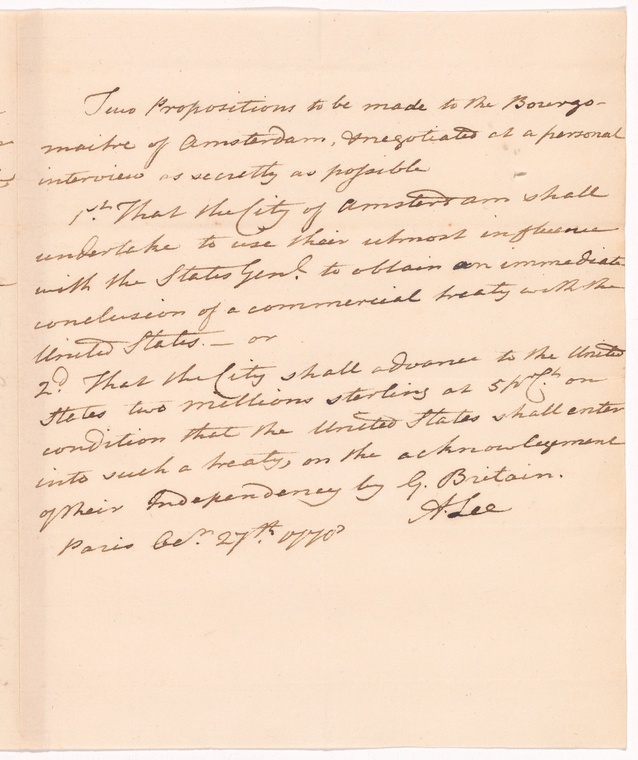 Two Propositions to be made to the Bourgo-
maitre of Amsterdam, & negotiated at a personal
interview as secretly as possible
1st. That the City of Amsterdam shall
undertake to use their utmost influence
with the States Genl. to obtain an immediate
conclusion of a commercial treaty with the
United States. — or
2d. That the City shall advance to the United
States two millions sterling at 5 pr. Ct. on
condition that the United States shall enter
into such a treaty, on the acknowlegement
of their Independency by G. Britain.
A. Lee
Paris Ocr. 27th. 1778